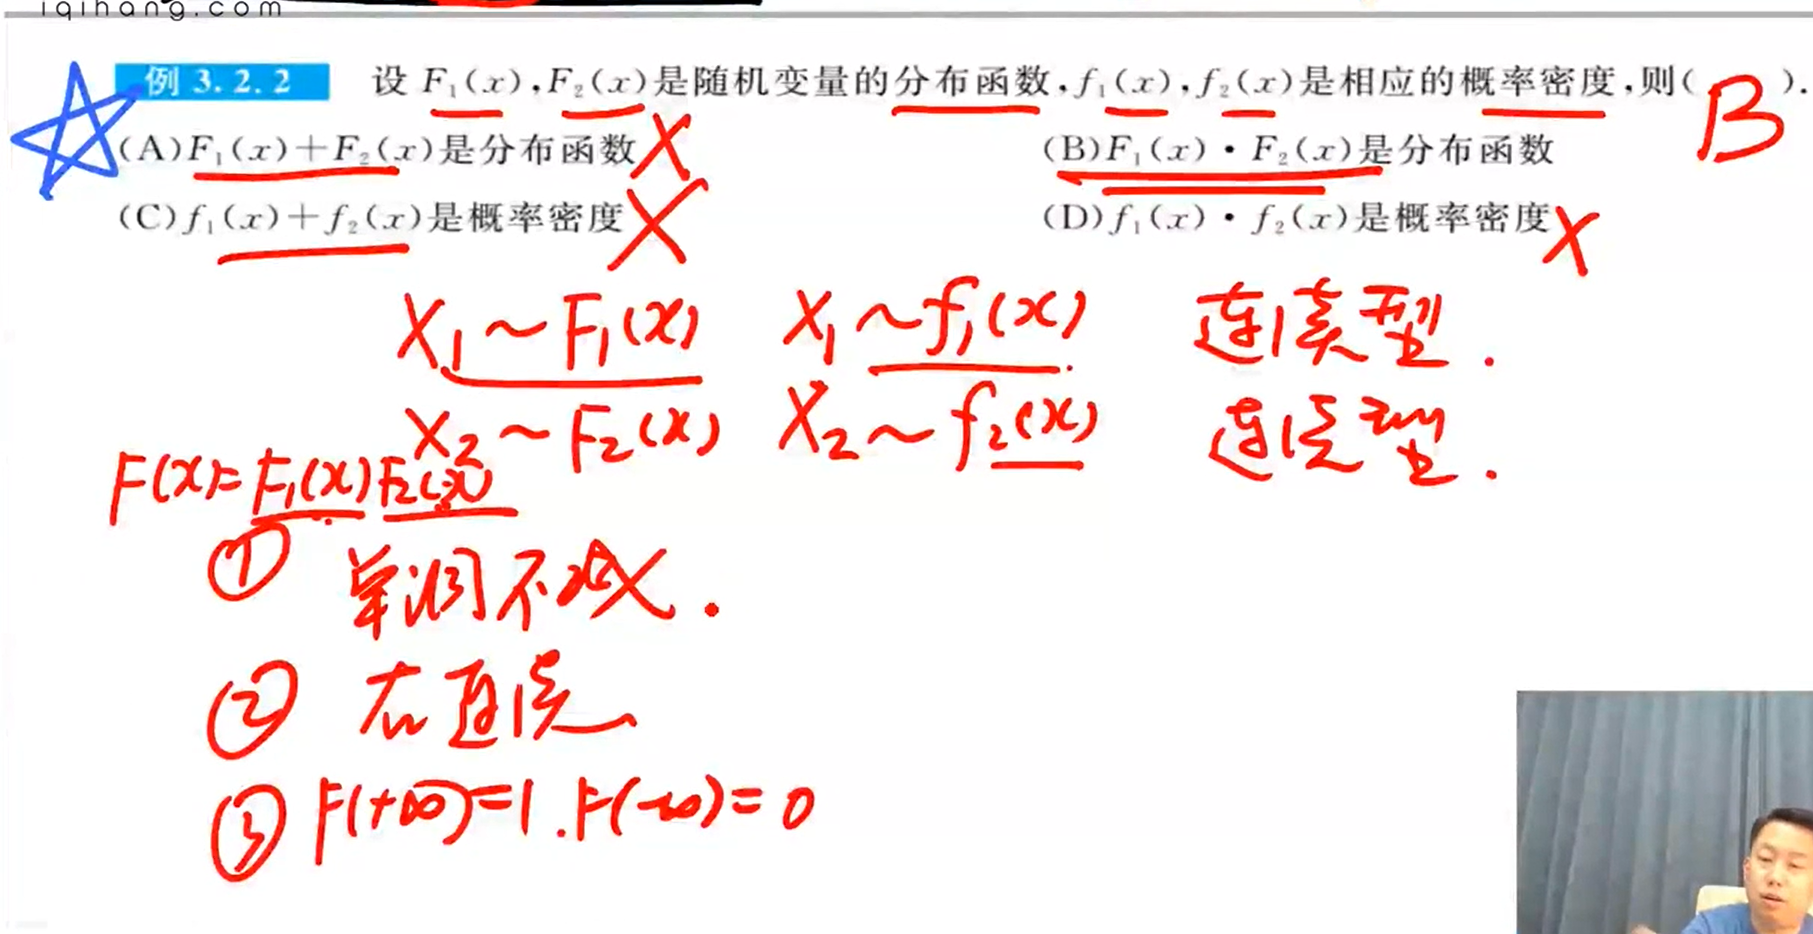 iqihang.com
例 3.2.2 设 F₁(x),F₂(x)是随机变量的分布函数,f₁(x),f₂(x)是相应的概率密度,则( B ).
(A)F₁(x)+F₂(x)是分布函数 X
(B)F₁(x)·F₂(x)是分布函数
(C)f₁(x)+f₂(x)是概率密度 X
(D)f₁(x)·f₂(x)是概率密度 X
X₁~F₁(x) X₁~f₁(x) 连续型.
X₂~F₂(x) X₂~f₂(x) 连续型.
F(x)=F₁(x)F₂(x)
① 单调不减.
② 右连续
③ F(+∞)=1.F(-∞)=0